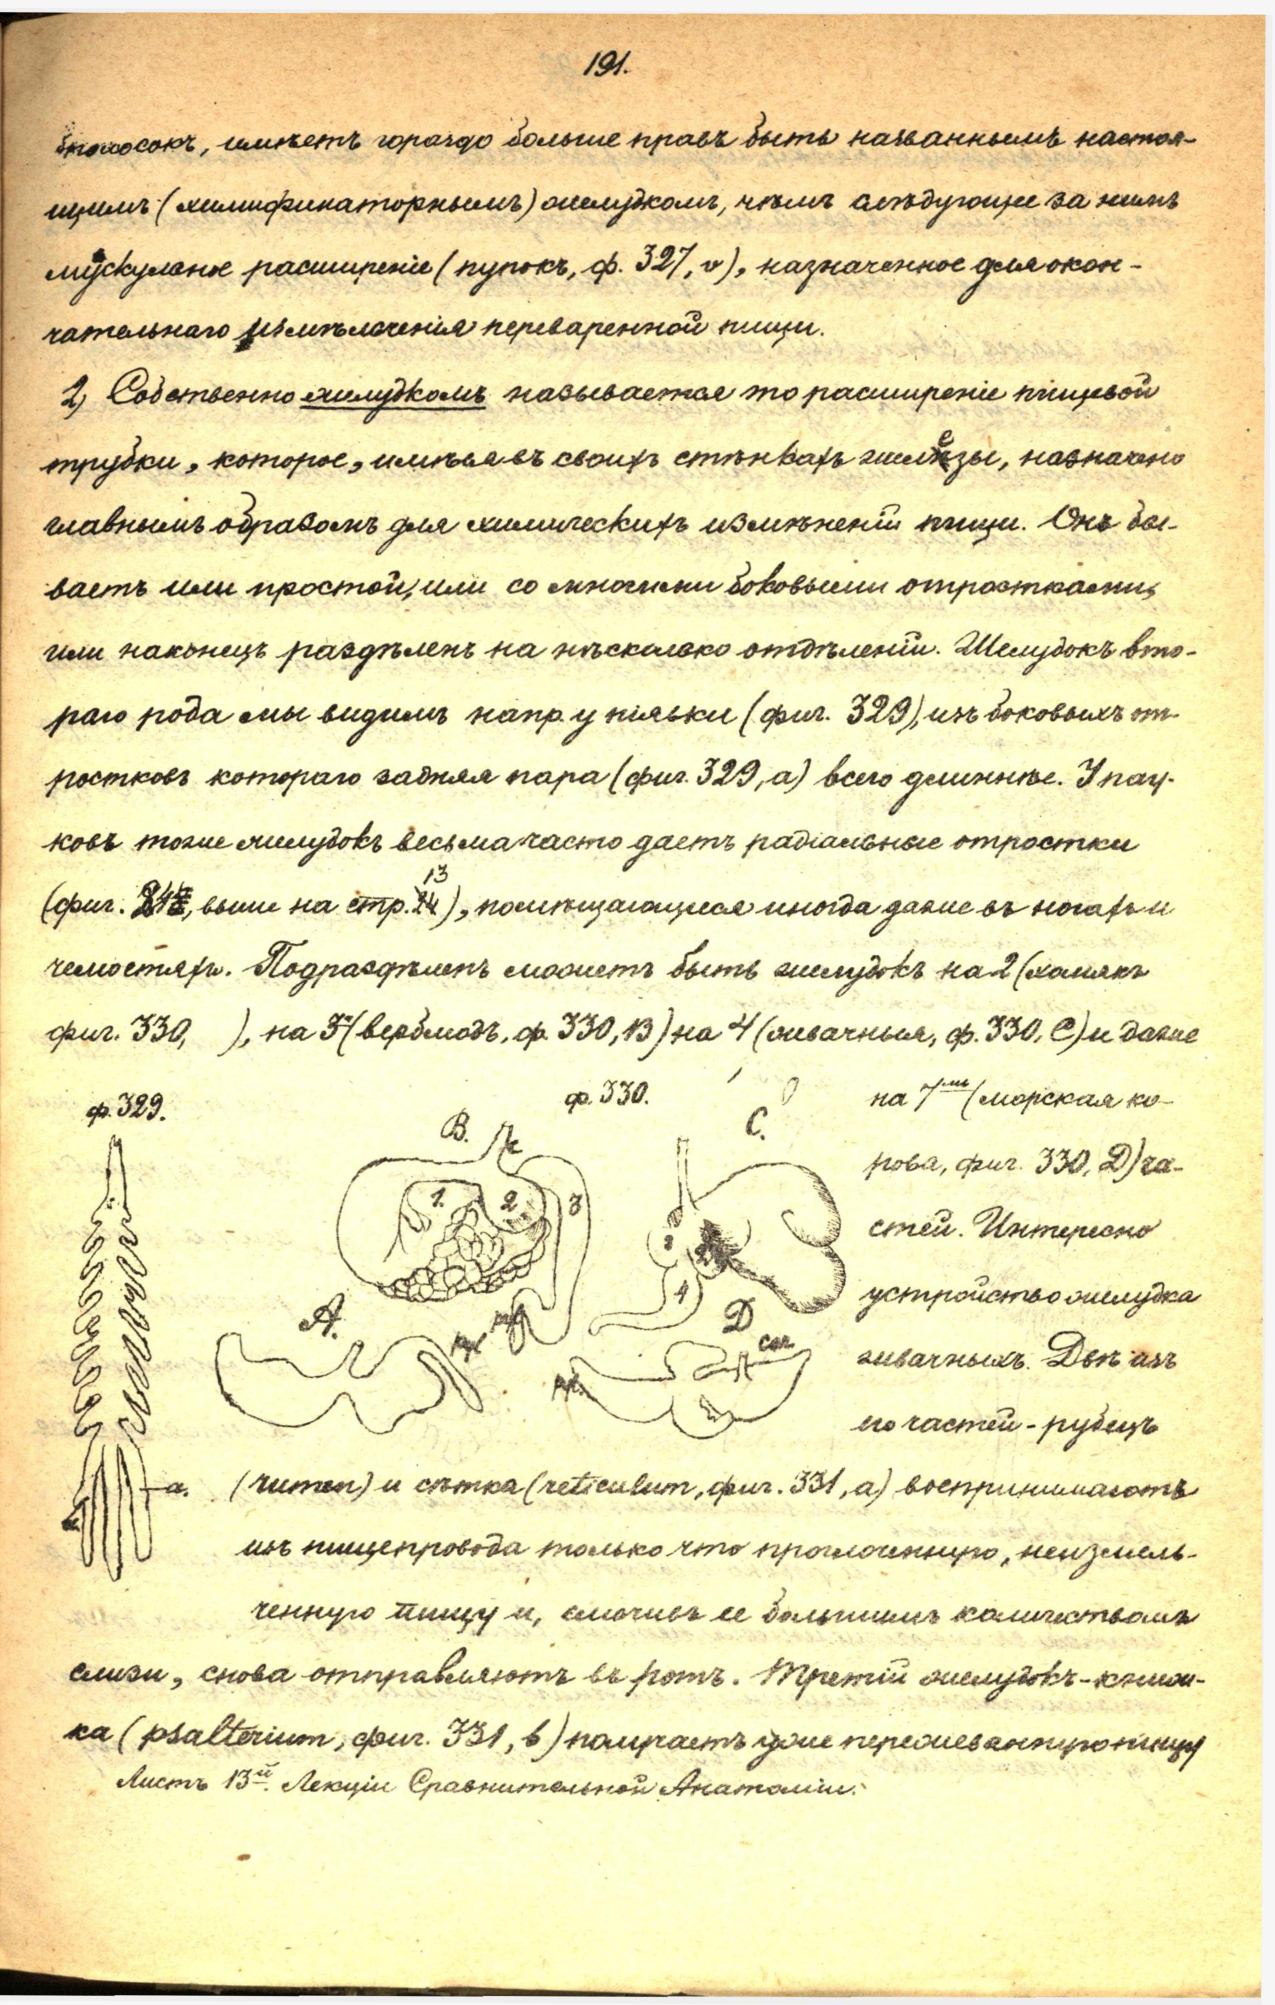 191.
имѣетъ гораздо больше правъ быть названнымъ настоя-
щимъ (химификаторнымъ) желудкомъ, чѣмъ слѣдующее за нимъ
мускульное расширеніе (пупокъ, ф. 327, v), назначенное для окон-
чательнаго измѣлоченія переваренной пищи.
2) Собственно желудкомъ называется то расширеніе пищевой
трубки, которое, имѣя въ своихъ стѣнкахъ железы, назначено
главнымъ образомъ для химическихъ измѣненій пищи. Онъ бы-
ваетъ или простой, или со многими боковыми отростками,
или наконецъ раздѣленъ на нѣсколько отдѣленій. Желудокъ вто-
раго рода мы видимъ напр. у піявки (фиг. 329), изъ боковыхъ от-
ростковъ котораго задняя пара (фиг. 329, а) всего длиннѣе. У пау-
ковъ тоже желудокъ весьма часто даетъ радіальные отростки
(фиг. выше на стр. 13), помѣщающіеся иногда даже въ ногахъ и
челюстяхъ. Подраздѣленъ можетъ быть желудокъ на 2 (хомякъ
фиг. 330, ), на 3 (верблюдъ, ф. 330, B) на 4 (жвачныя, ф. 330, C) и даже
ф. 329.
ф. 330.
на 7мь (морская ко-
рова, фиг. 330, D) ча-
стей. Интересно
устройство желудка
жвачныхъ. Двѣ изъ
его частей - рубецъ
B.
C.
1.
2
3
2
4
A.
D
a.
(rumen) и сѣтка (reticulum, фиг. 331, а) воспринимаютъ
изъ пищепровода только что проглоченную, неизмель-
ченную пищу и, смочивъ ее большимъ количествомъ
слизи, снова отправляютъ въ ротъ. Третій желудокъ - книж-
ка (psalterium, фиг. 331, b) получаетъ уже пережеванную пищу
Листъ 13й. Лекціи Сравнительной Анатоміи.